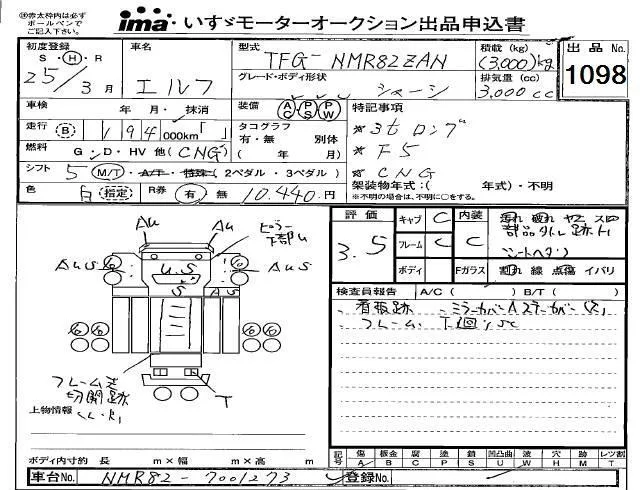 ※赤太枠内は必ず
ボールペンで
ご記入下さい。
ima・いすゞモーターオークション出品申込書
初度登録
S・H・R
25/3月
車名
エルフ
型式
TFG-NMR82ZAN
グレード・ボディ形状
シャーシ
積載 (kg)
(3,000)kg
排気量 (cc)
3,000cc
出品No.
1098
車検 年 月・抹消
装備 AC PS PW
特記事項
走行 (B) 194 000km「 」
タコグラフ
有・無 別体
( 年 月)
※3tロング
※F5
※CNG
燃料 G・D・HV 他(CNG)
シフト 5 M/T・A/T・特殊(2ペダル・3ペダル)
架装物年式:( 年式)・不明
※不明の場合は、不明に○をする。
色 白 (指定) R券 有 無 10,440円
評価 3.5
キャブ C 内装 C
フレーム C
ボディ Fガラス
汚れ 破れ ヤニ スレ
部品外し跡有
シートヘタリ
割れ 線 点傷 イバリ
検査員報告 A/C ( ) B/T ( )
看板跡
フレーム
Au Au
AuS AuS
U.S
S A S
T
フレーム
切開跡
上物情報
ボディ内寸約 長 m×幅 m×高 m
記号 傷 板金 腐 塗 錆 凹凸曲 穴 跡 レツ割
A B C P S U W H X M T
車台No. NMR82-7001273
登録No.